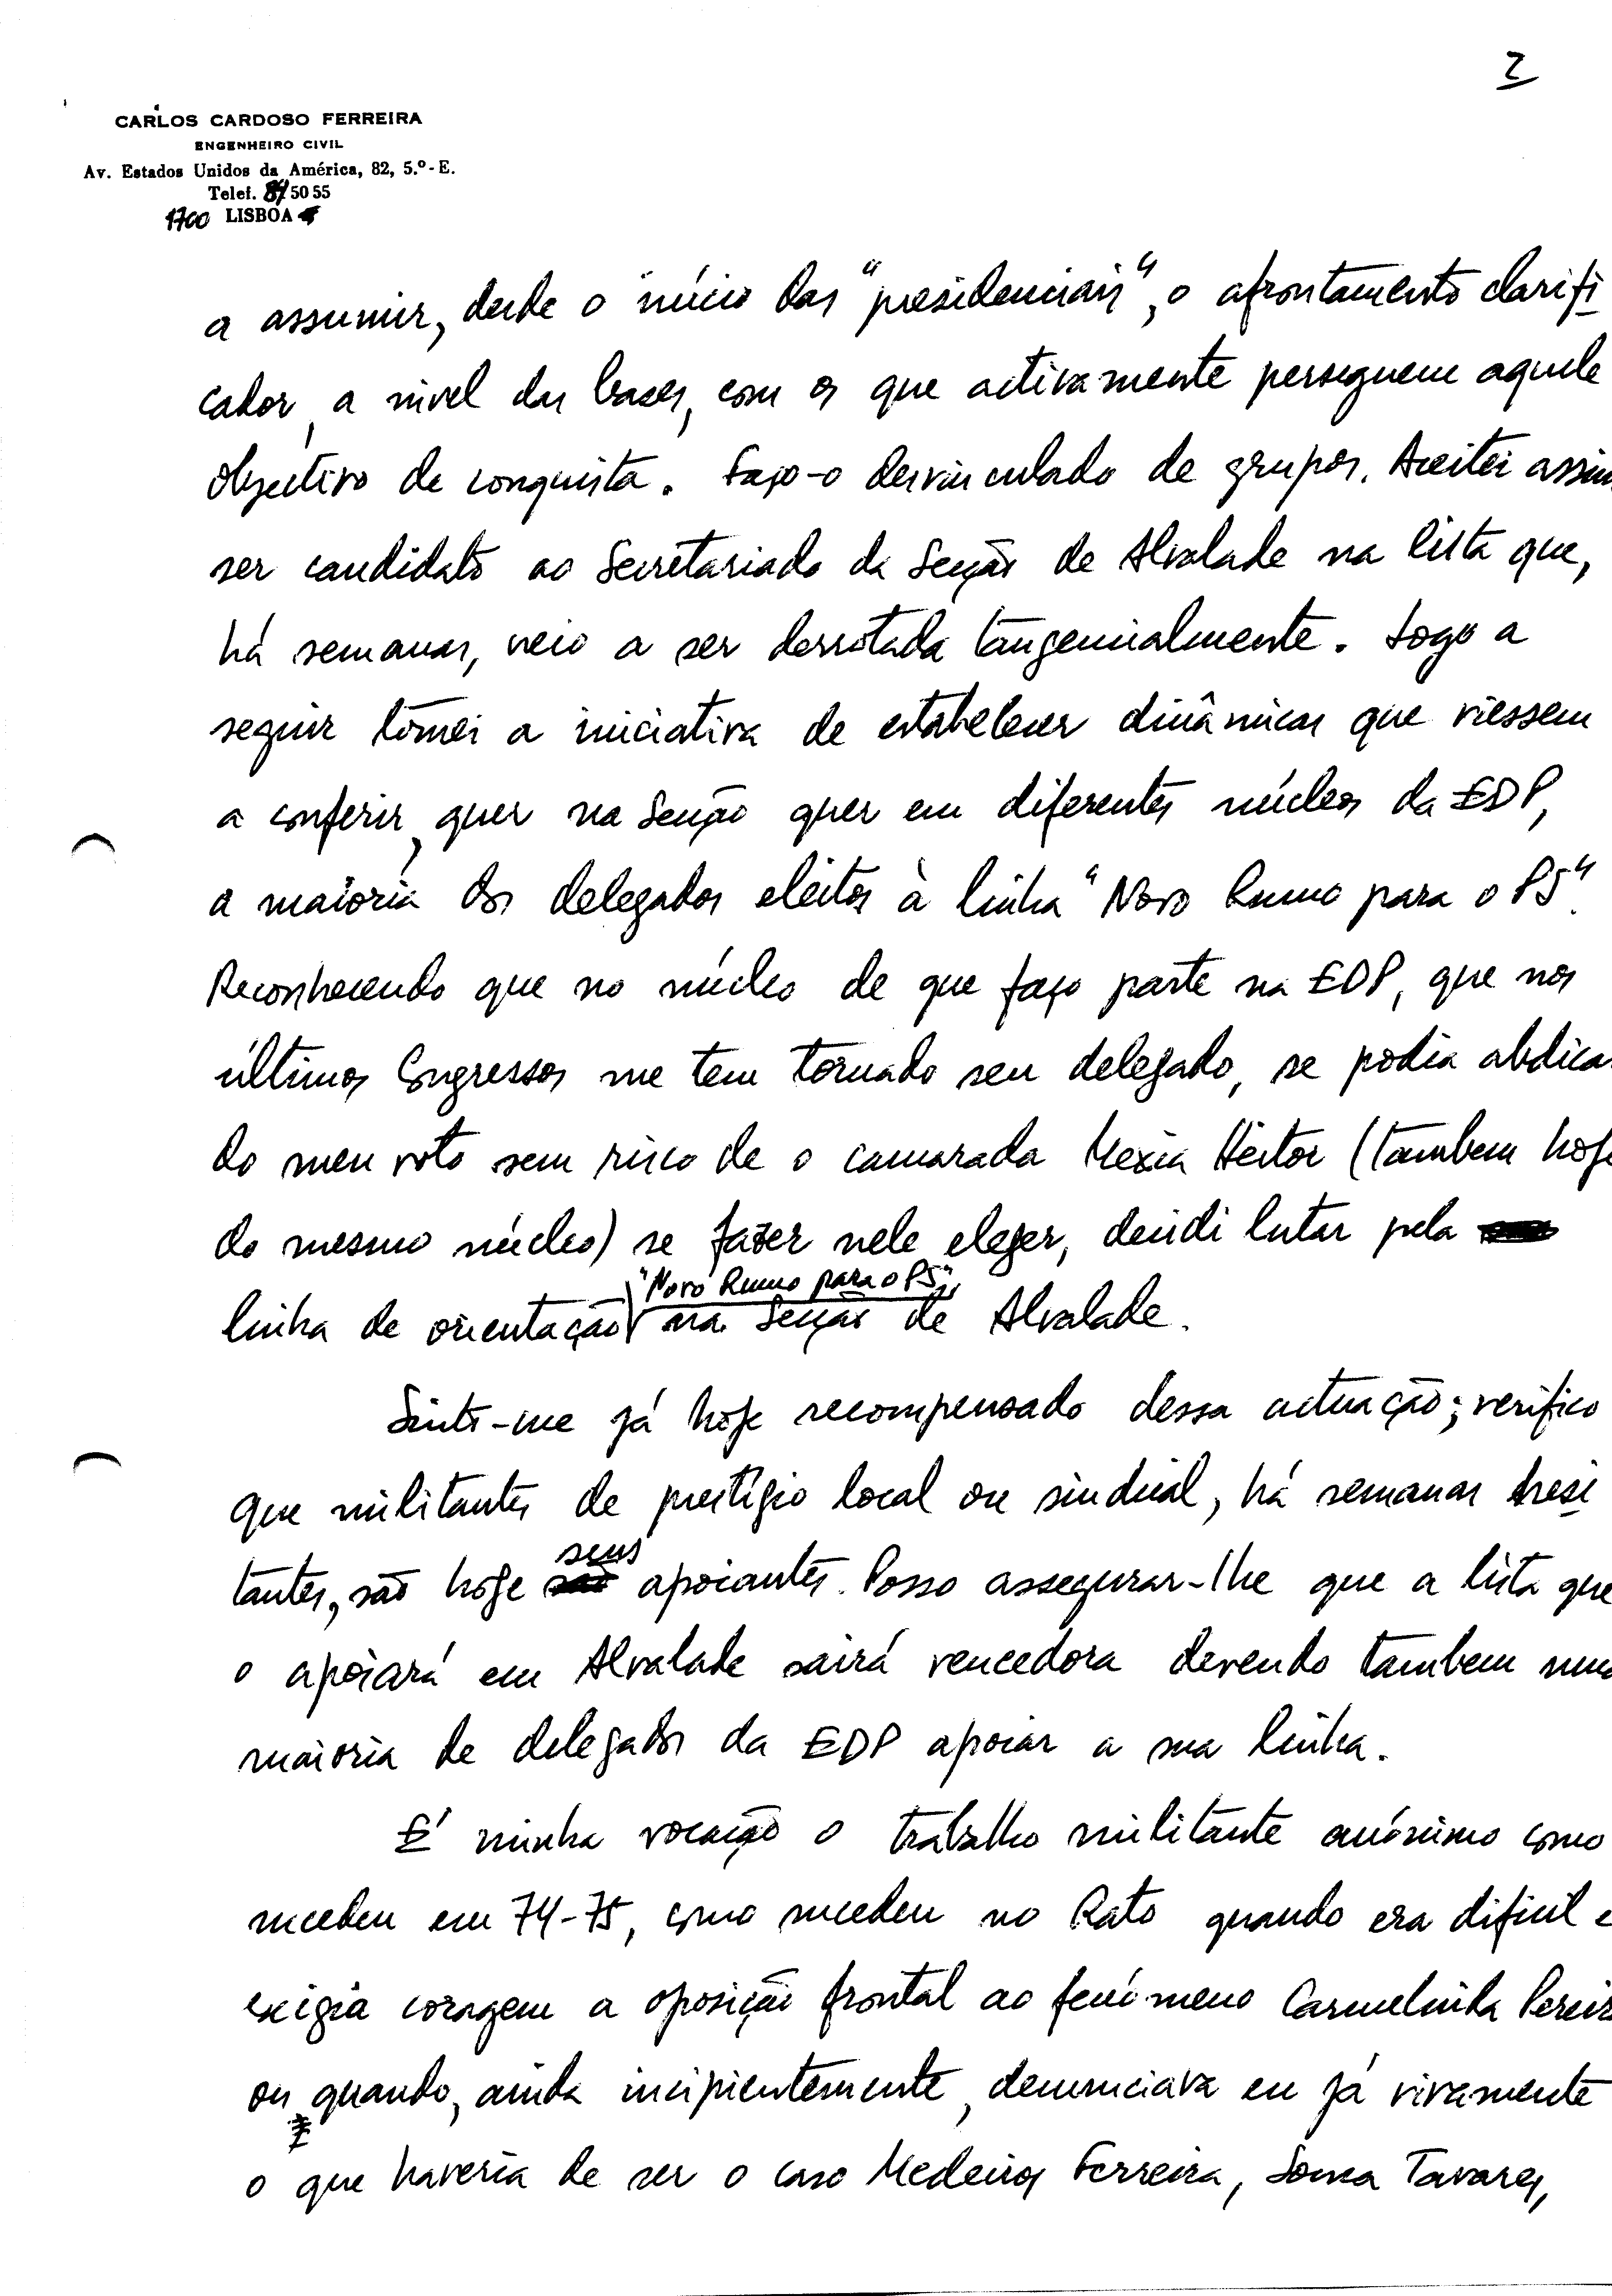 2
CARLOS CARDOSO FERREIRA
ENGENHEIRO CIVIL
Av. Estados Unidos da América, 82, 5.º-E.
Telef. 89 50 55
1700 LISBOA
a assumir, desde o início das "presidenciais", o afrontamento clarifi
cador, a nivel das bases, com os que activamente perseguem aquele
objectivo de conquista. Faço-o desvinculado de grupos. Aceitei assim
ser candidato ao Secretariado da Secção de Alvalade na lista que,
há semanas, veio a ser derrotada tangencialmente. Logo a
seguir tomei a iniciativa de estabelecer dinâmicas que viessem
a conferir, quer na Secção quer em diferentes núcleos da EDP,
a maioria dos delegados eleitos à linha "Novo Rumo para o PS".
Reconhecendo que no núcleo de que faço parte na EDP, que nos
últimos Congressos me tem tornado seu delegado, se podia abdicar
do meu voto sem risco de o camarada Mexia Heitor (tambem hoje
do mesmo núcleo) se fazer nele eleger, decidi lutar pela
"Novo Rumo para o PS",
linha de orientação na Secção de Alvalade.
Sinto-me já hoje recompensado dessa actuação; verifico
que militantes de prestígio local ou sindical, há semanas hesi
seus
tantes, são hoje apoiantes. Posso assegurar-lhe que a lista que
o apoiará em Alvalade sairá vencedora devendo tambem uma
maioria de delegados da EDP apoiar a sua linha.
É minha vocação o trabalho militante anónimo como
sucedeu em 74-75, como sucedeu no Rato quando era dificil e
exigia coragem a oposição frontal ao fenómeno Carmelinda Pereira
ou quando, ainda incipientemente, denunciava eu já vivamente
o que haveria de ser o caso Medeiros Ferreira, Sousa Tavares,